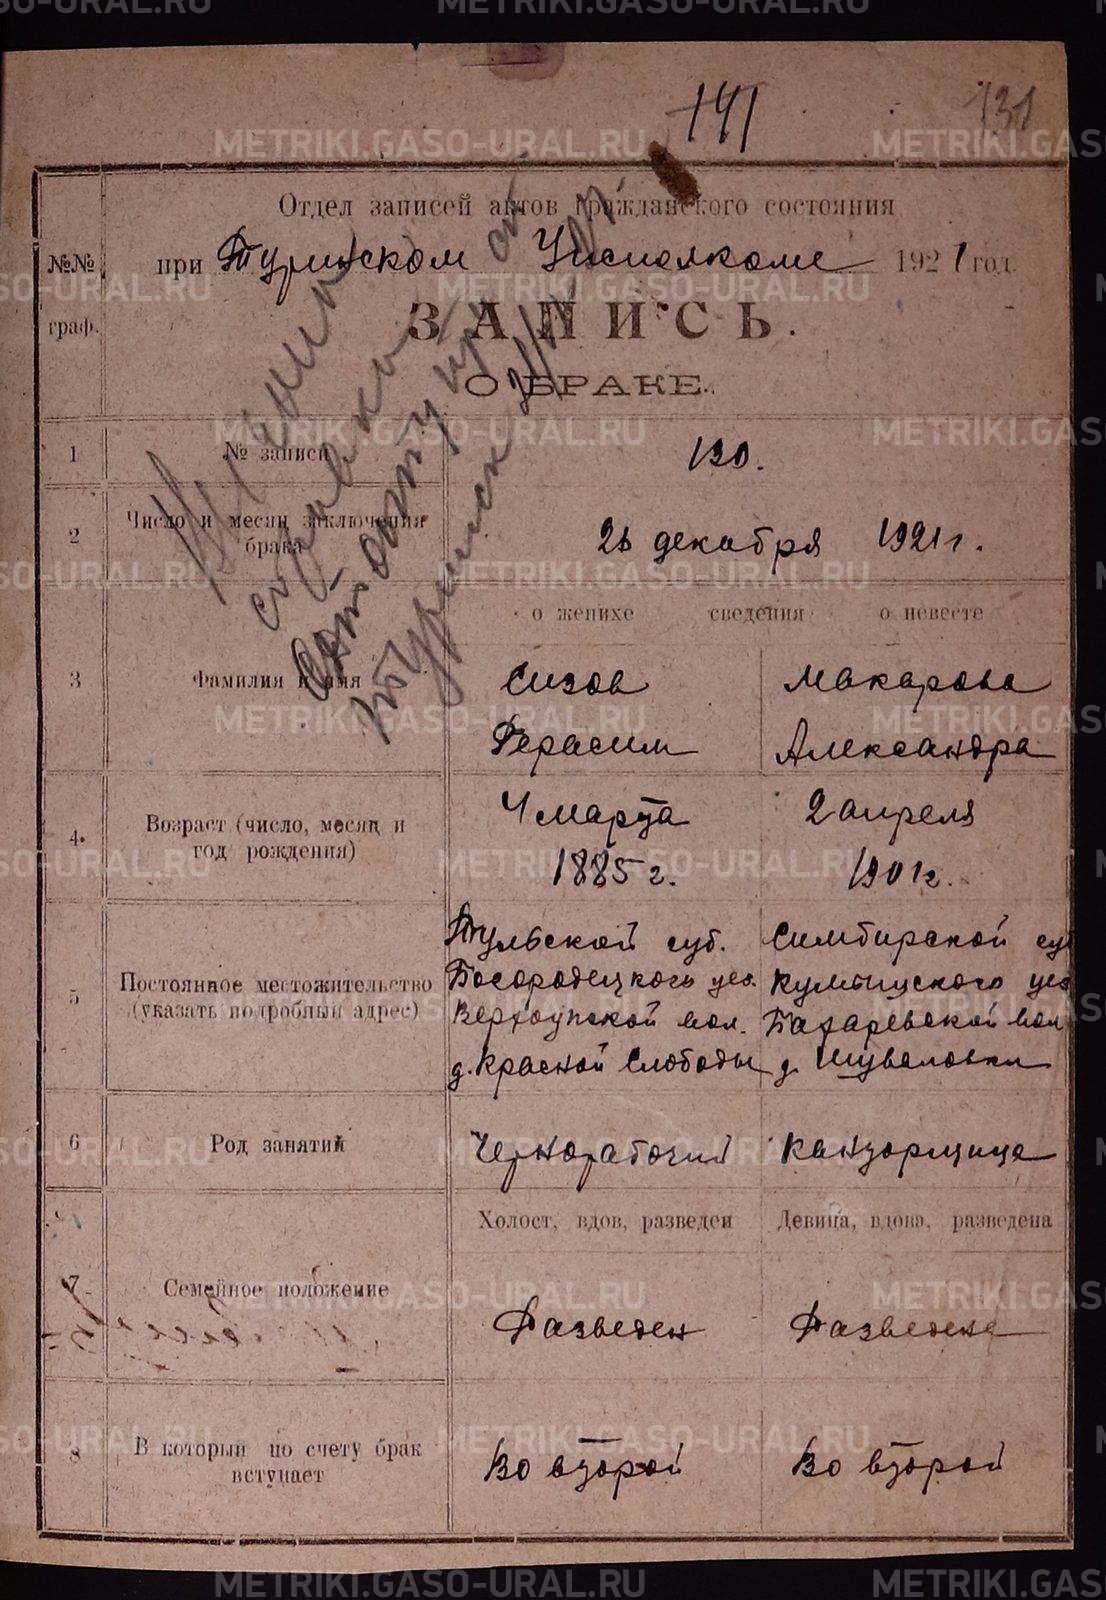 141
131
Отдел записей актов гражданского состояния
№№ граф.
при Туринском Уисполкоме 1921 год.
ЗАПИСЬ
О БРАКЕ.
1 № записи 130.
2 Число и месяц заключения брака 26 декабря 1921 г.
о женихе сведения о невесте
3 Фамилия и имя
Сизов Макарова
Герасим Александра
4. Возраст (число, месяц и год рождения)
4 марта 2 апреля
1885 г. 1901 г.
5 Постоянное местожительство (указать подробный адрес)
Тульской губ. Симбирской губ
Богородецкого уез. Курмышского уез
Верхоупской вол. Вол
д. Красной Слободы д. Шуваловки
6 Род занятий Чернорабочий Канторщица
Холост, вдов, разведен Девица, вдова, разведена
7 Семейное положение Разведен Разведена
8 В который по счету брак вступает
Во второй Во второй
METRIKI.GASO-URAL.RU